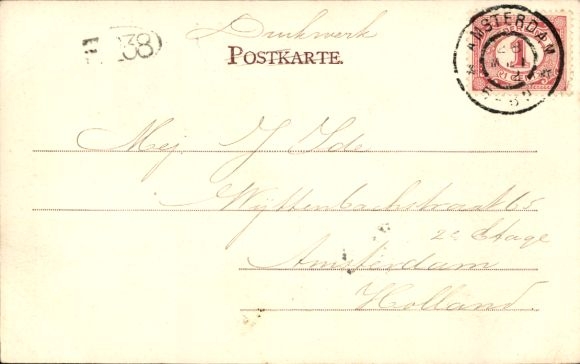 Drukwerk
38
POSTKARTE.
AMSTERDAM
1
Mej J Ide
Wyttenbachstraat 65
2e Etage
Amsterdam
Holland.